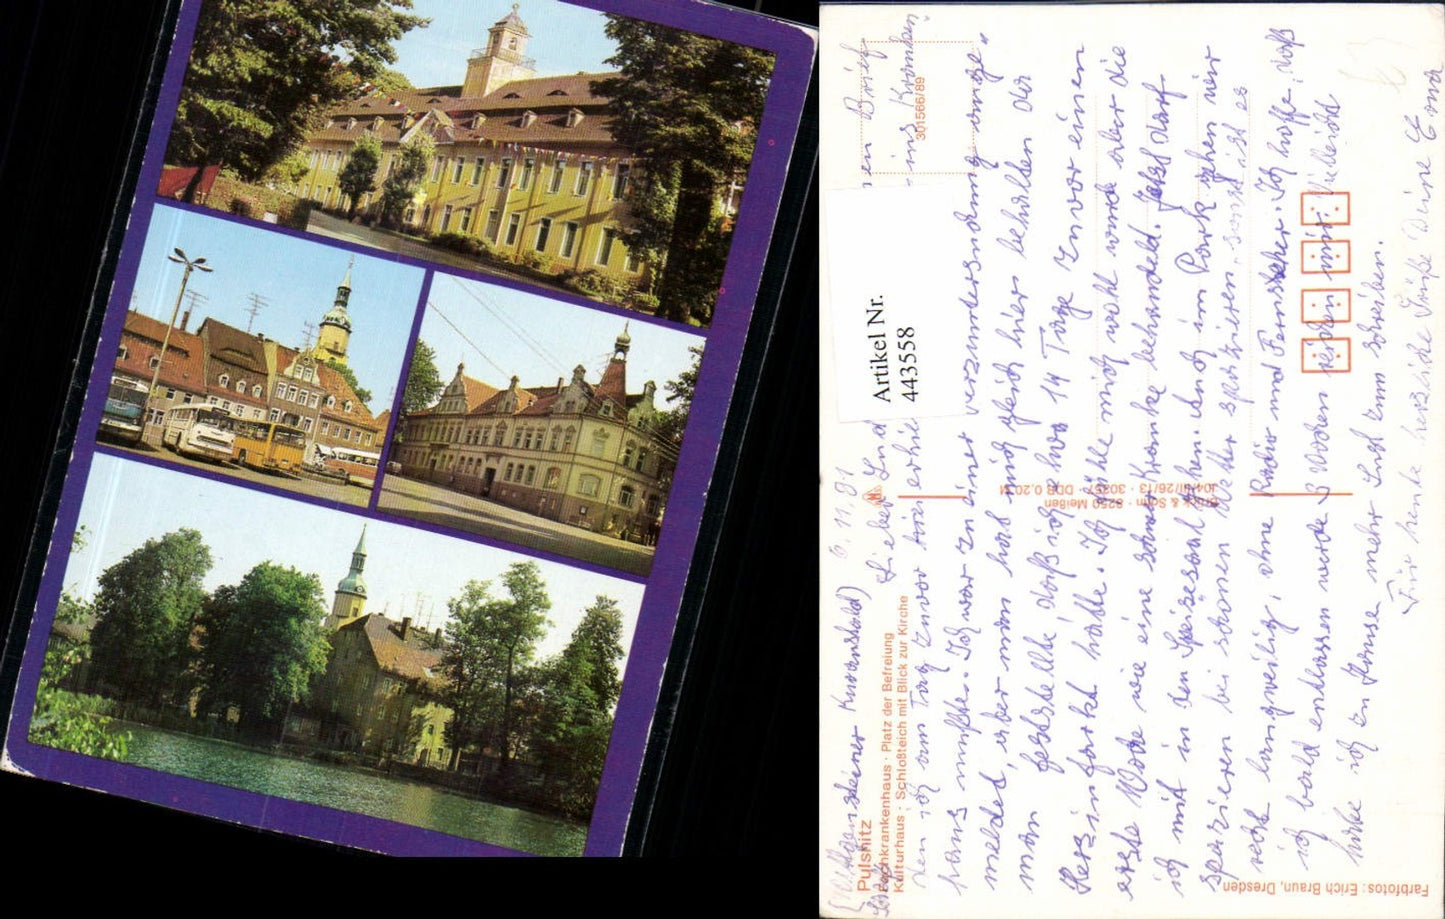 6.11.91
Lieber Lud
den ich am Tag zuvor hier erhie
haus mußte. Ich war zu einer verzundersndung ange"
meldet, aber man hat mich gleich hier behalten da
man feststellte, daß ich etwa 14 Tage zuvor einen
Herzinfarkt hatte. Ich fühle mich wohl wurde aber die
erste Woche wie eine schwer Kranke behandelt. Jetzt darf
ich mit in den Speisesaal gehen. doch im Park gehen wir
spazieren bei schönem Wetter spazieren, sonst ist es
recht langweilig, ohne Radio und Fernseher. Ich hoffe, daß
ich bald entlassen werde 3 Wochen reichen mir. Vielleicht
habe ich zu Hause mehr Lust zum schreiben.
Für heute herzliche Grüße Deine Erna
en Brief
ins Kranken
Pulsnitz
Fachkrankenhaus · Platz der Befreiung
Kulturhaus · Schloßteich mit Blick zur Kirche
Artikel Nr.
443558
301566/89
Brück & Sohn · 8250 Meißen
DDR 0,20 M
Farbfotos: Erich Braun, Dresden